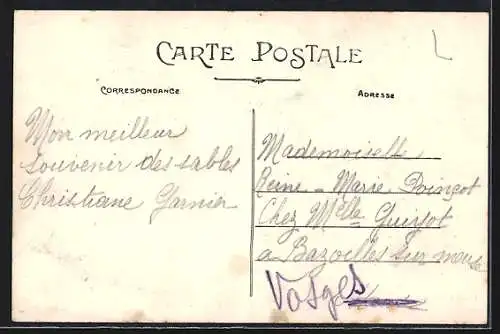 CARTE POSTALE
CORRESPONDANCE
ADRESSE
Mon meilleur
souvenir des sables
Christiane Garnier
Mademoiselle
Reine-Marie Poinçot
Chez Mlle Guyot
a Bazoilles sur meuse
Vosges